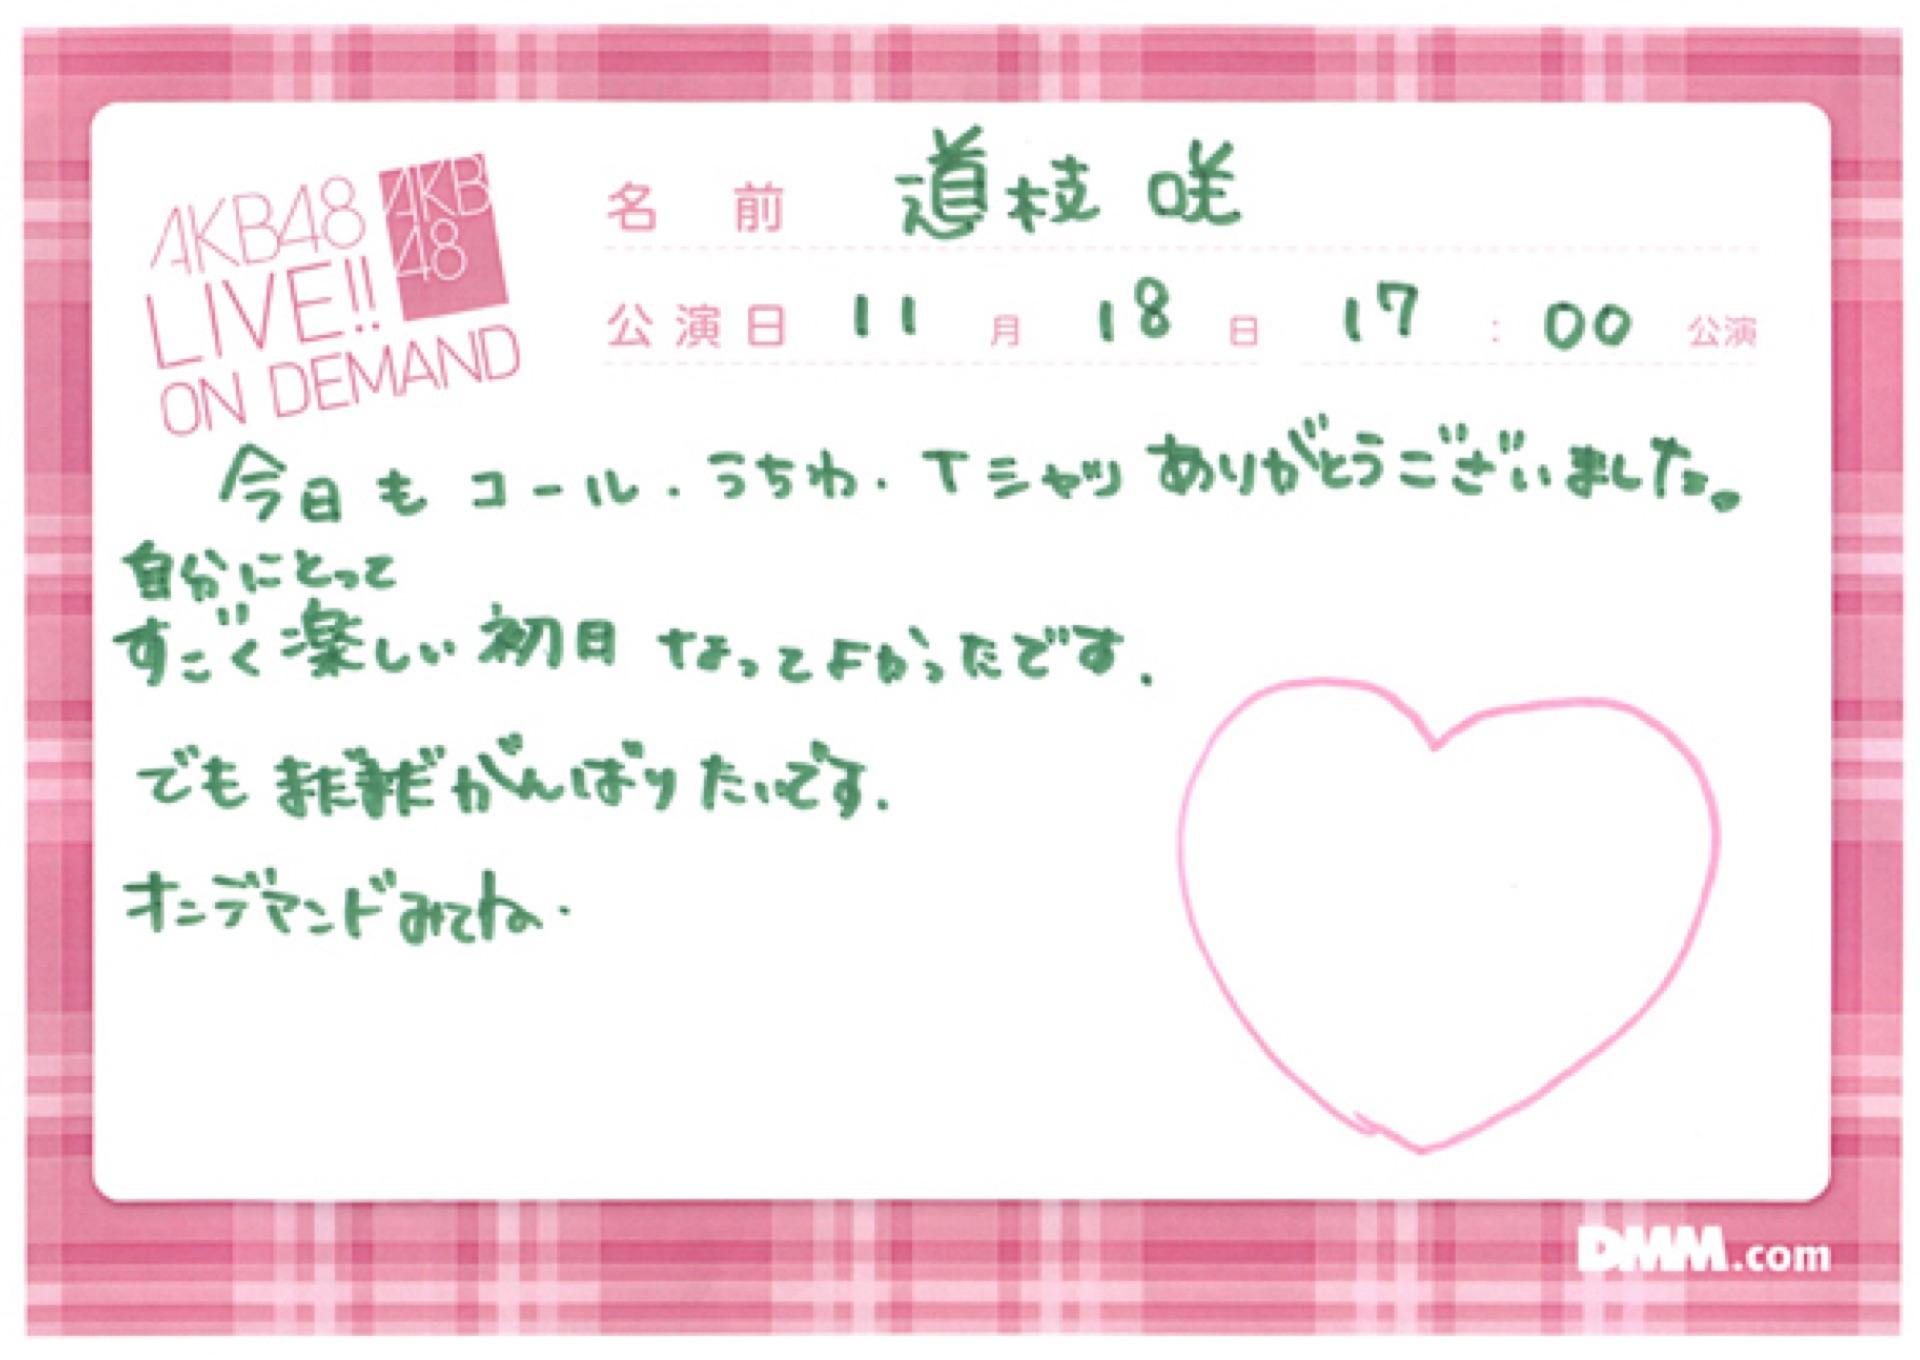 AKB48
LIVE!!
ON DEMAND
AKB
48
名前 道枝 咲
公演日 11月 18日 17:00 公演
今日も コール・うちわ・Tシャツ ありがとうございました。
自分にとって
すごく楽しい 初日 なってよかったです.
でも まだまだ がんばりたいです.
オンデマンドみてね.
DMM.com